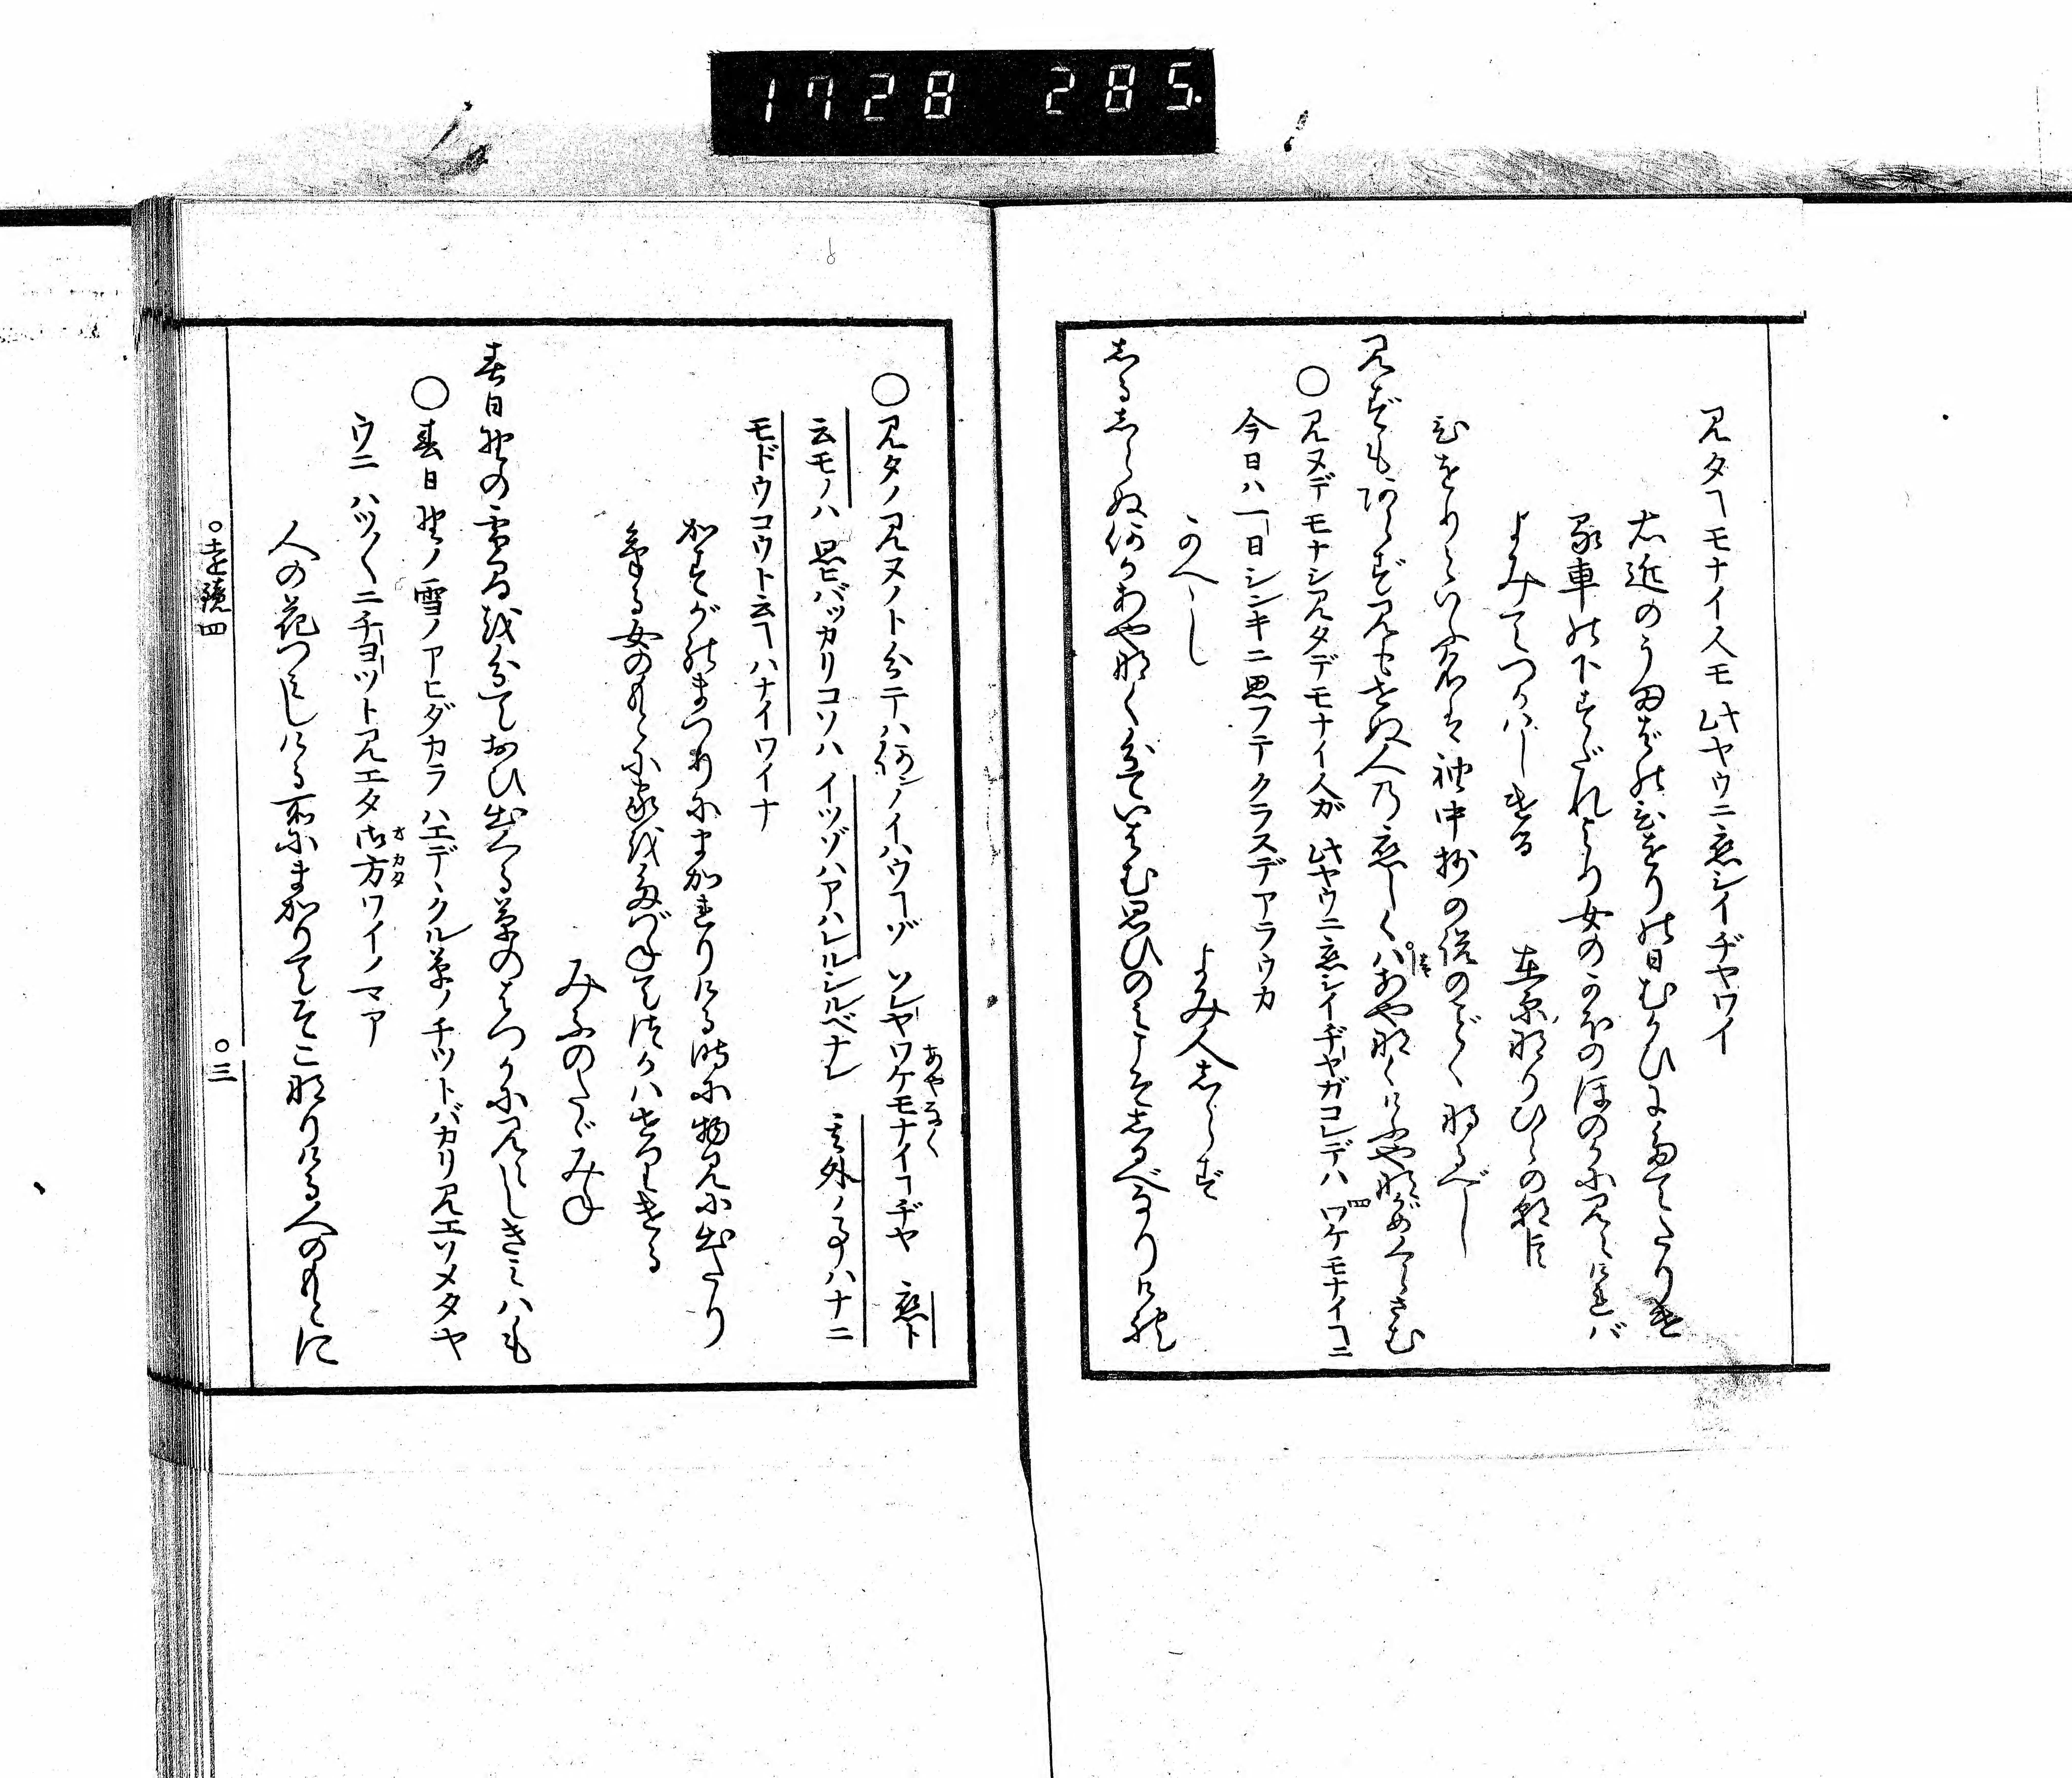 1728 285.
見タヿモナイ人モ此ヤウニ恋シイヂヤワイ
右近のうまばのひをりの日むかひにたてたりける
車の下すだれより女のかほのほのかに見えければ
よみてつかはしける 在原なりひらの朝臣
ひをりといふ名は袖中抄の説のごとくなるべし
見ずもあらず見もせぬ人の恋しくはあやなくけふやながめくらさむ
○見ヌデモナシ見タデモナイ人ガ此ヤウニ恋シイヂヤガコレデハワケモナイヿニ
今日ハ一日シンキニ思フテクラスデアラウカ
かへし よみ人しらず
しるしらぬ何かあやなくわきていはむ思ひのみこそしるべなりけれ
○見タノ見ヌノト分テハ何ノイハウヿゾソレヤワケモナイヿヂヤ 恋ト
あやなく
云モノハ思ヒバッカリコソハイツゾハアハレルシルベナレ 其外ノ事ハナニ
モドウコウト云ヿハナイワイナ
かすがのまつりにまかれりける時に物見に出たり
ける女のもとに家をたづねてつかはせりける
みぶのたゞみね
春日野の雪まを分ておひ出くる草のはつかに見えしきみハも
○春日野ノ雪ノアヒダカラハエデヽクル草ノチツトバカリ見エソメタヤ
ウニハツ〳〵ニチヨツト見エタ御方ワイノマア
オカタ
人の花つみしける所にまかりてそこなりける人のもとに
○遠鏡四 ○三